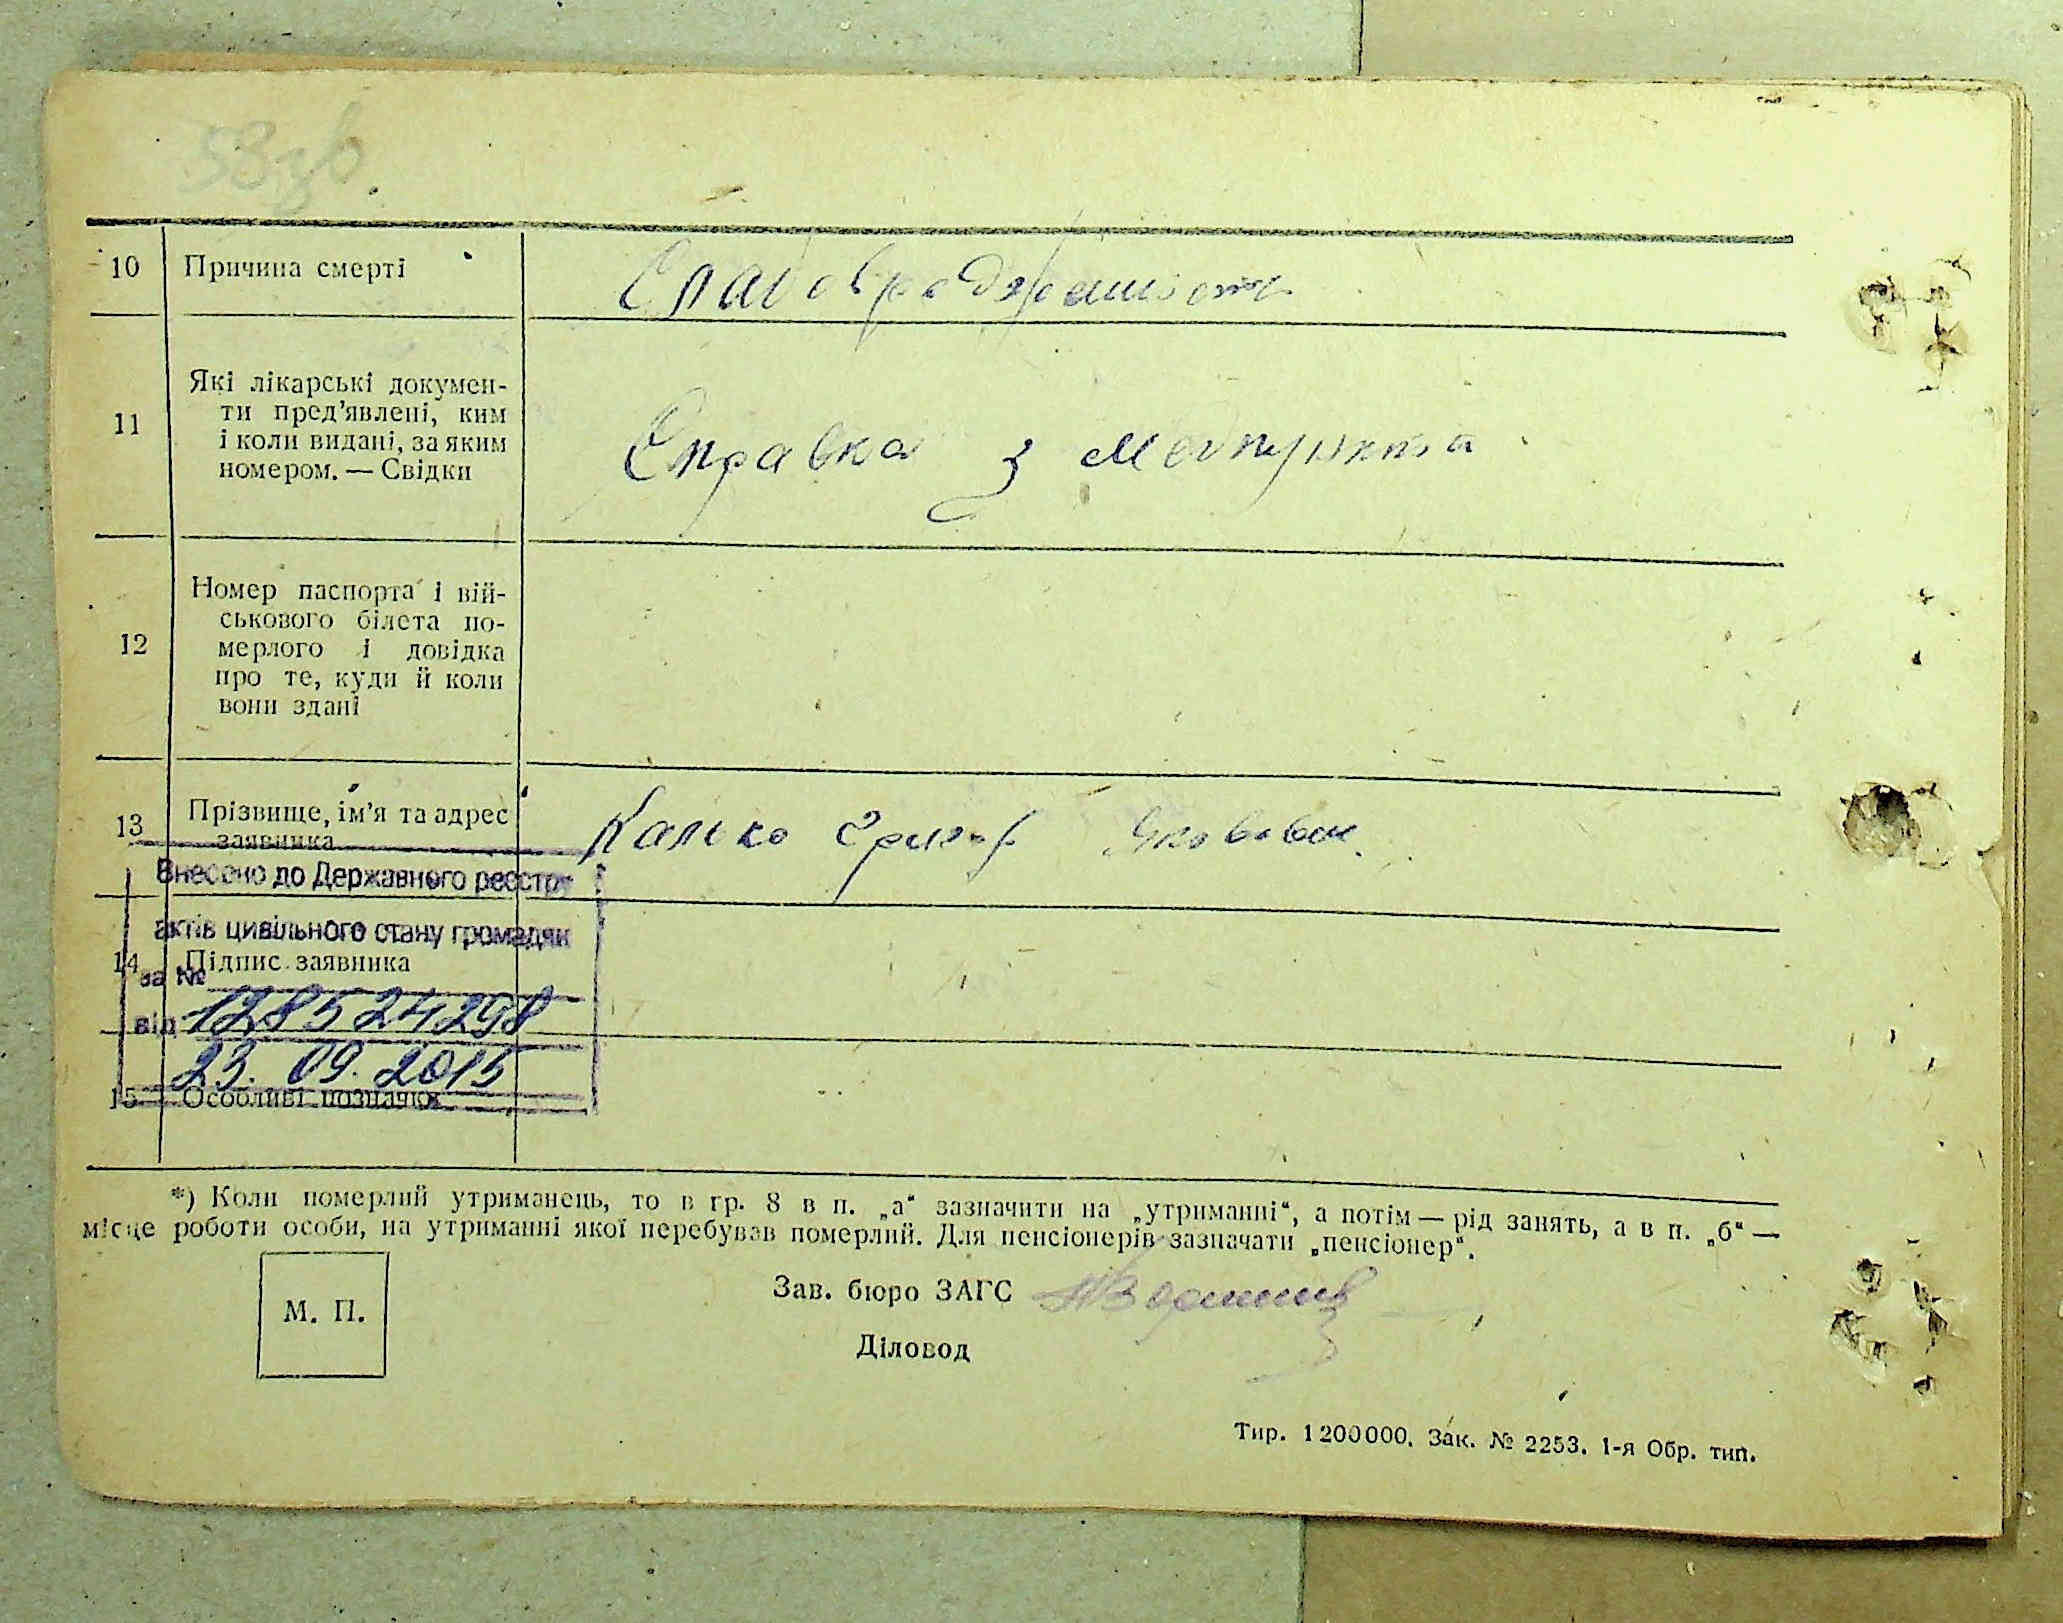 53зв
10 Причина смерті
11 Які лікарські докумен-
ти пред'явлені, ким
і коли видані, за яким
номером. — Свідки
Справка з медпункта
12 Номер паспорта і вій-
ськового білета по-
мерлого і довідка
про те, куди й коли
вони здані
13 Прізвище, ім'я та адрес
заявника
Калько Григор Яковович
Внесено до Державного реєстру
актів цивільного стану громадян
14 Підпис заявника
за №
від 128524298
23.09.2015
15 Особливі позначки
*) Коли померлий утриманець, то в гр. 8 в п. „а“ зазначити на „утриманні“, а потім — рід занять, а в п. „б“ —
місце роботи особи, на утриманні якої перебував померлий. Для пенсіонерів зазначати „пенсіонер“.
М. П.
Зав. бюро ЗАГС
Діловод
Тир. 1 200 000. Зак. № 2253. 1-я Обр. тип.